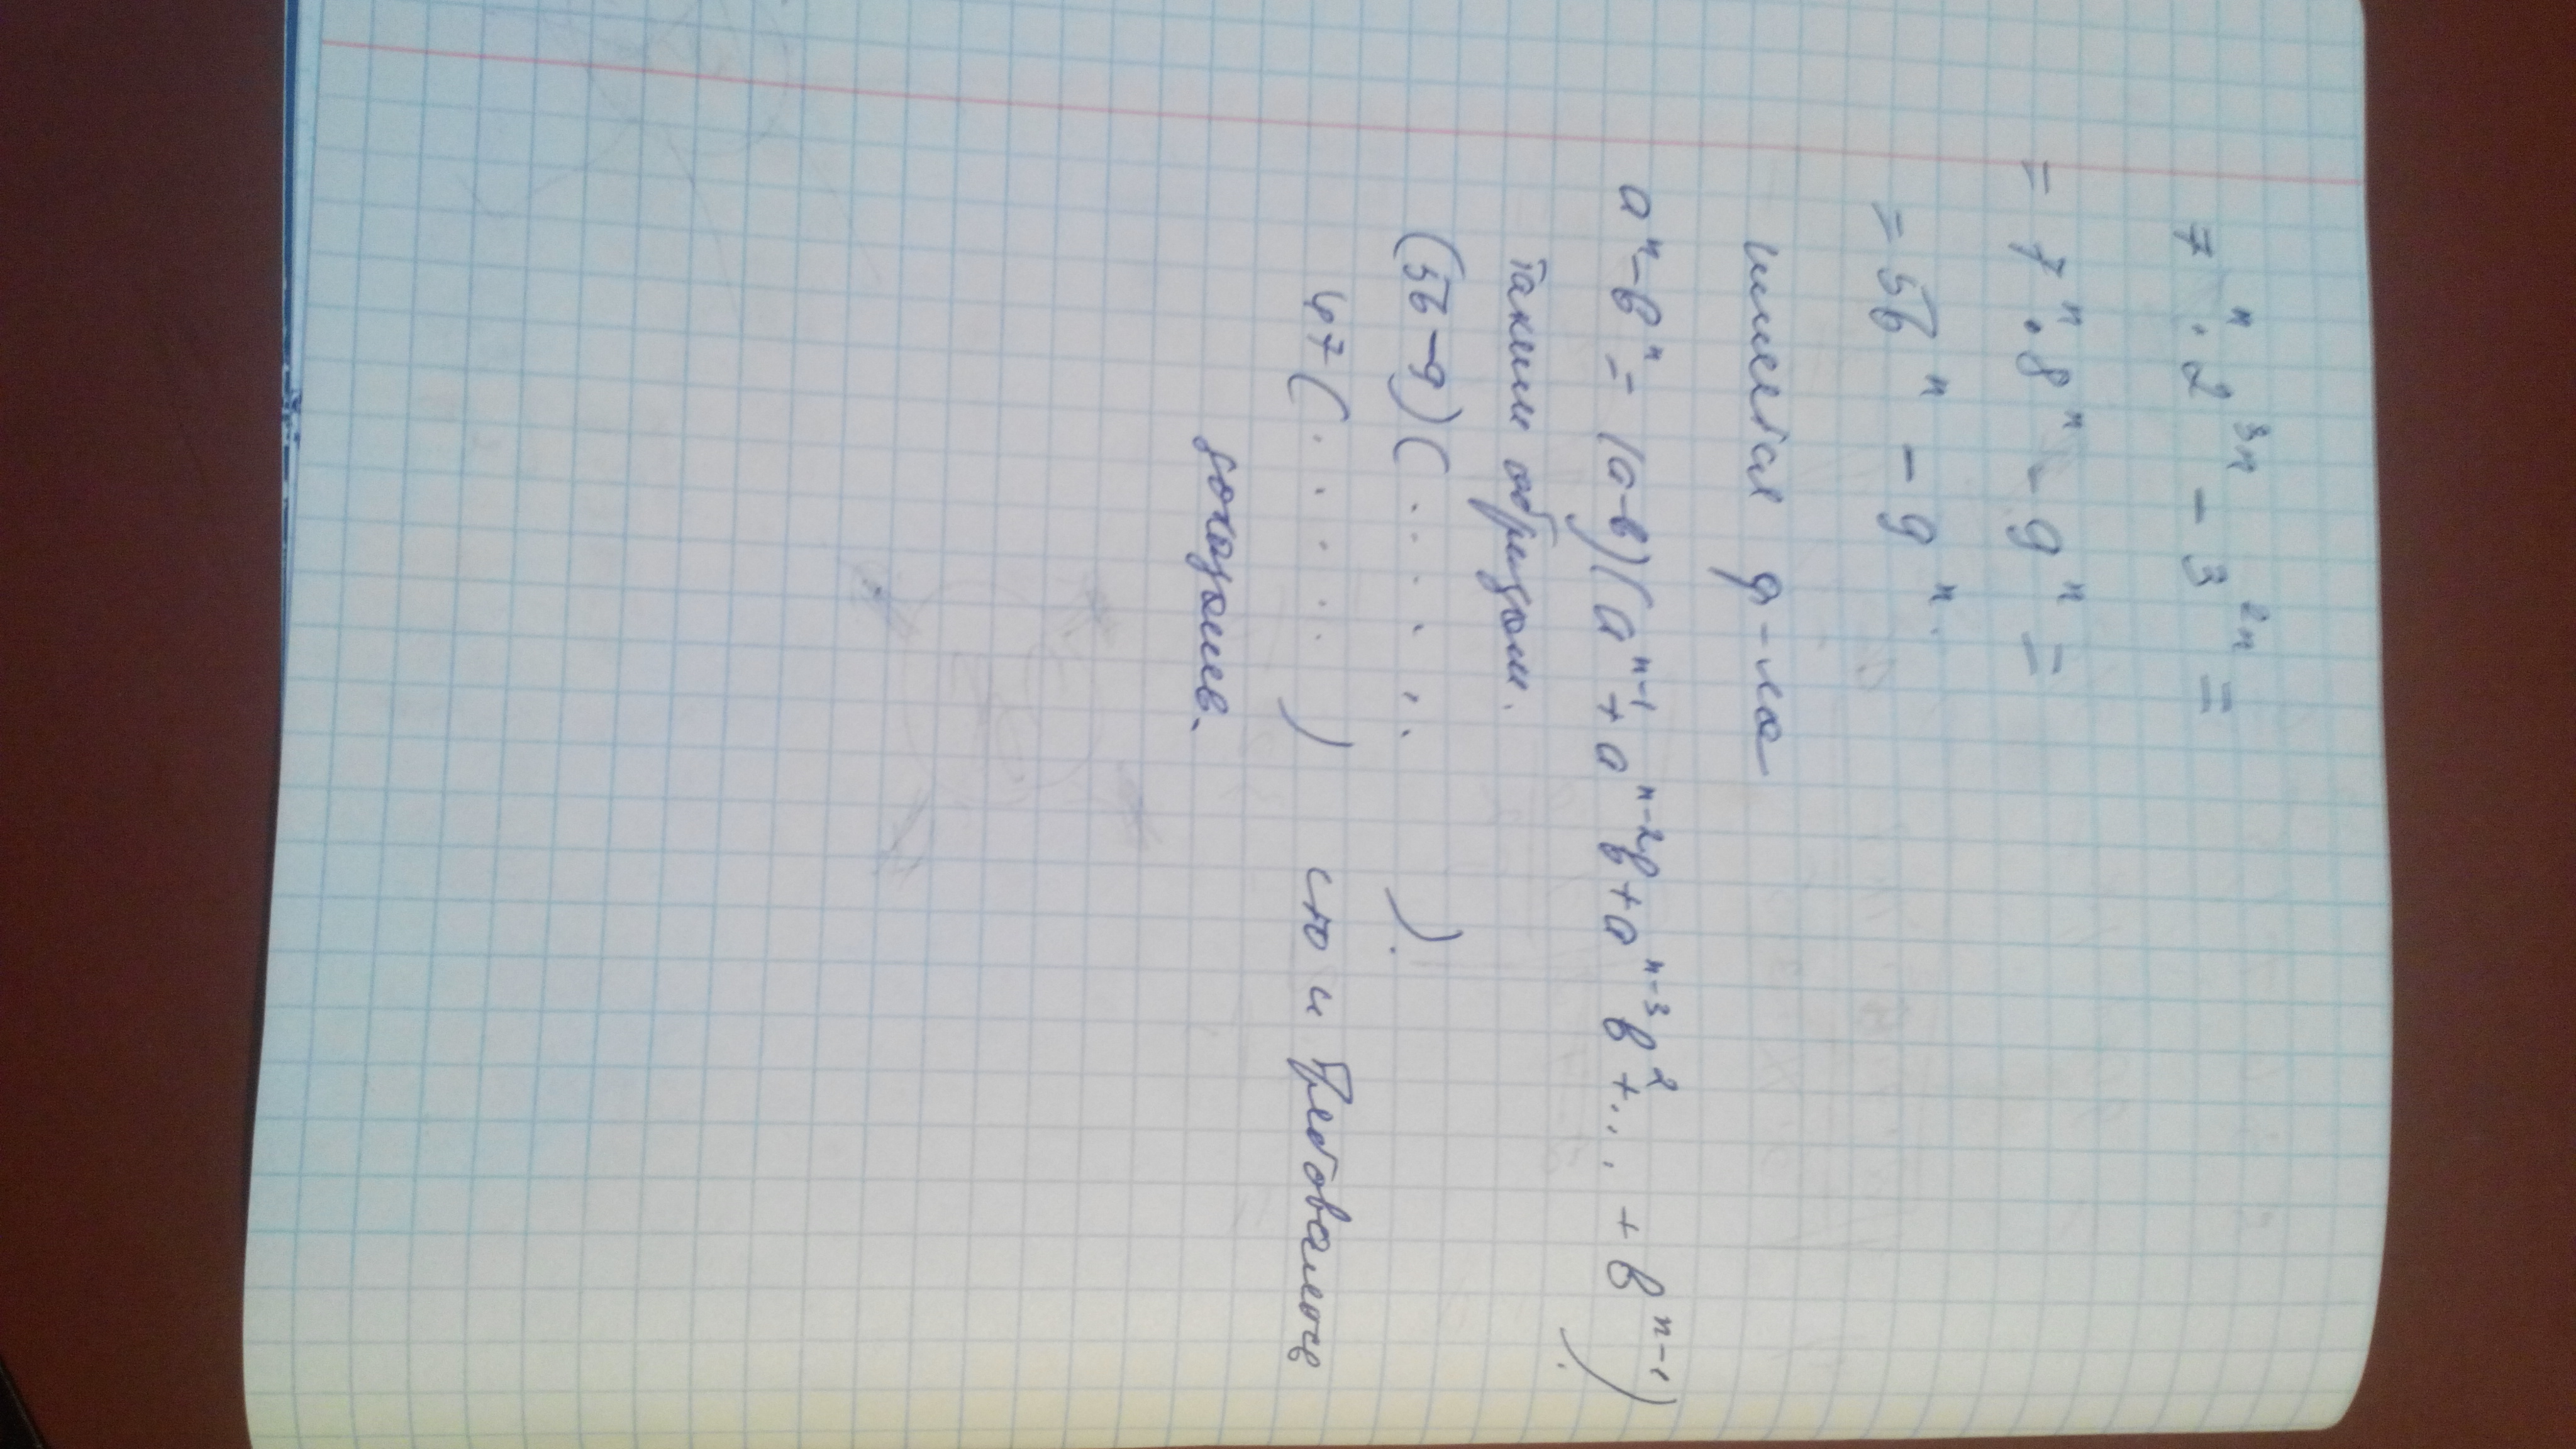 7ⁿ · 2³ⁿ - 3²ⁿ =
= 7ⁿ · 8ⁿ - 9ⁿ =
= 56ⁿ - 9ⁿ.
имеется ф-ла
aⁿ - bⁿ = (a-b)(aⁿ⁻¹ + aⁿ⁻²b + aⁿ⁻³b² + ... + bⁿ⁻¹).
таким образом.
(56-9)(.......).
47(.....) что и требовалось
доказать.